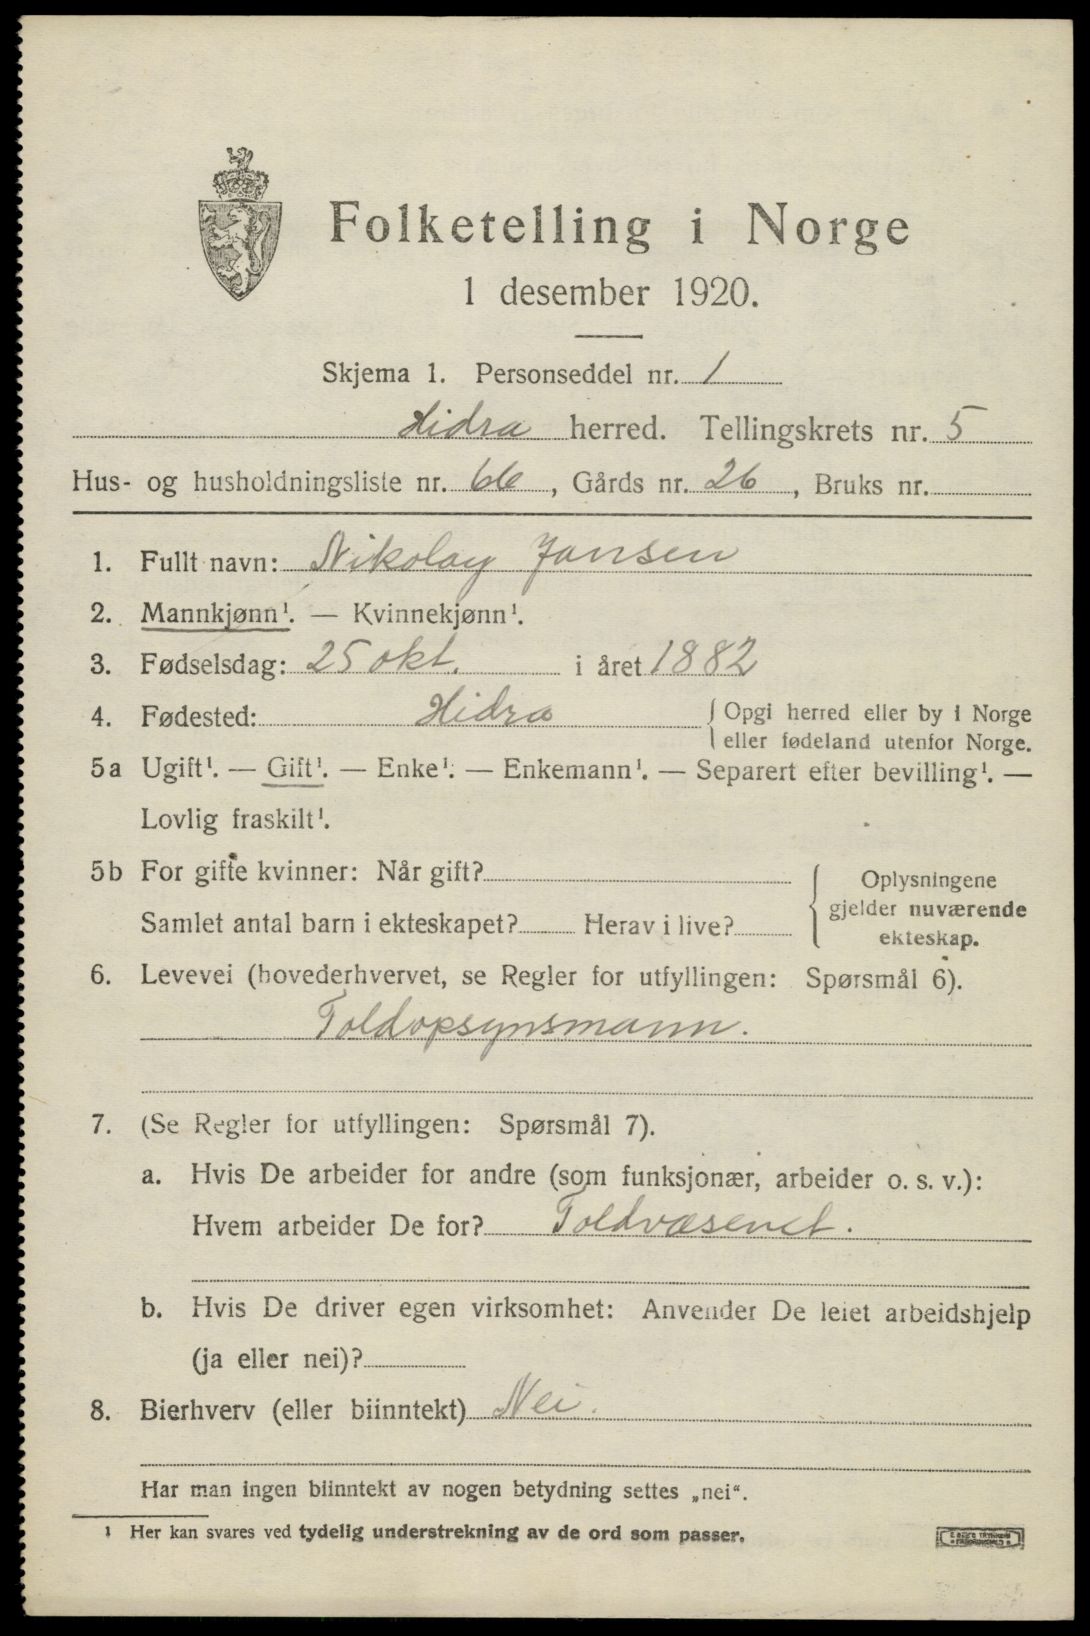 Folketelling i Norge
1 desember 1920.
Skjema 1. Personseddel nr. 1
Hidra herred. Tellingskrets nr. 5
Hus- og husholdningsliste nr. 66, Gårds nr. 26, Bruks nr.
1. Fullt navn: Nikolay Jansen
2. Mannkjønn¹. — Kvinnekjønn¹.
3. Fødselsdag: 25 okt. i året 1882
4. Fødested: Hidra { Opgi herred eller by i Norge
eller fødeland utenfor Norge.
5a Ugift¹. — Gift¹. — Enke¹. — Enkemann¹. — Separert efter bevilling¹. —
Lovlig fraskilt¹.
5b For gifte kvinner: Når gift? { Oplysningene
gjelder nuværende
Samlet antal barn i ekteskapet? Herav i live?
ekteskap.
6. Levevei (hovederhvervet, se Regler for utfyllingen: Spørsmål 6).
Toldopsynsmann.
7. (Se Regler for utfyllingen: Spørsmål 7).
a. Hvis De arbeider for andre (som funksjonær, arbeider o. s. v.):
Hvem arbeider De for? Toldvæsenet.
b. Hvis De driver egen virksomhet: Anvender De leiet arbeidshjelp
(ja eller nei)?
8. Bierhverv (eller biinntekt) Nei.
Har man ingen biinntekt av nogen betydning settes „nei“.
¹ Her kan svares ved tydelig understrekning av de ord som passer.